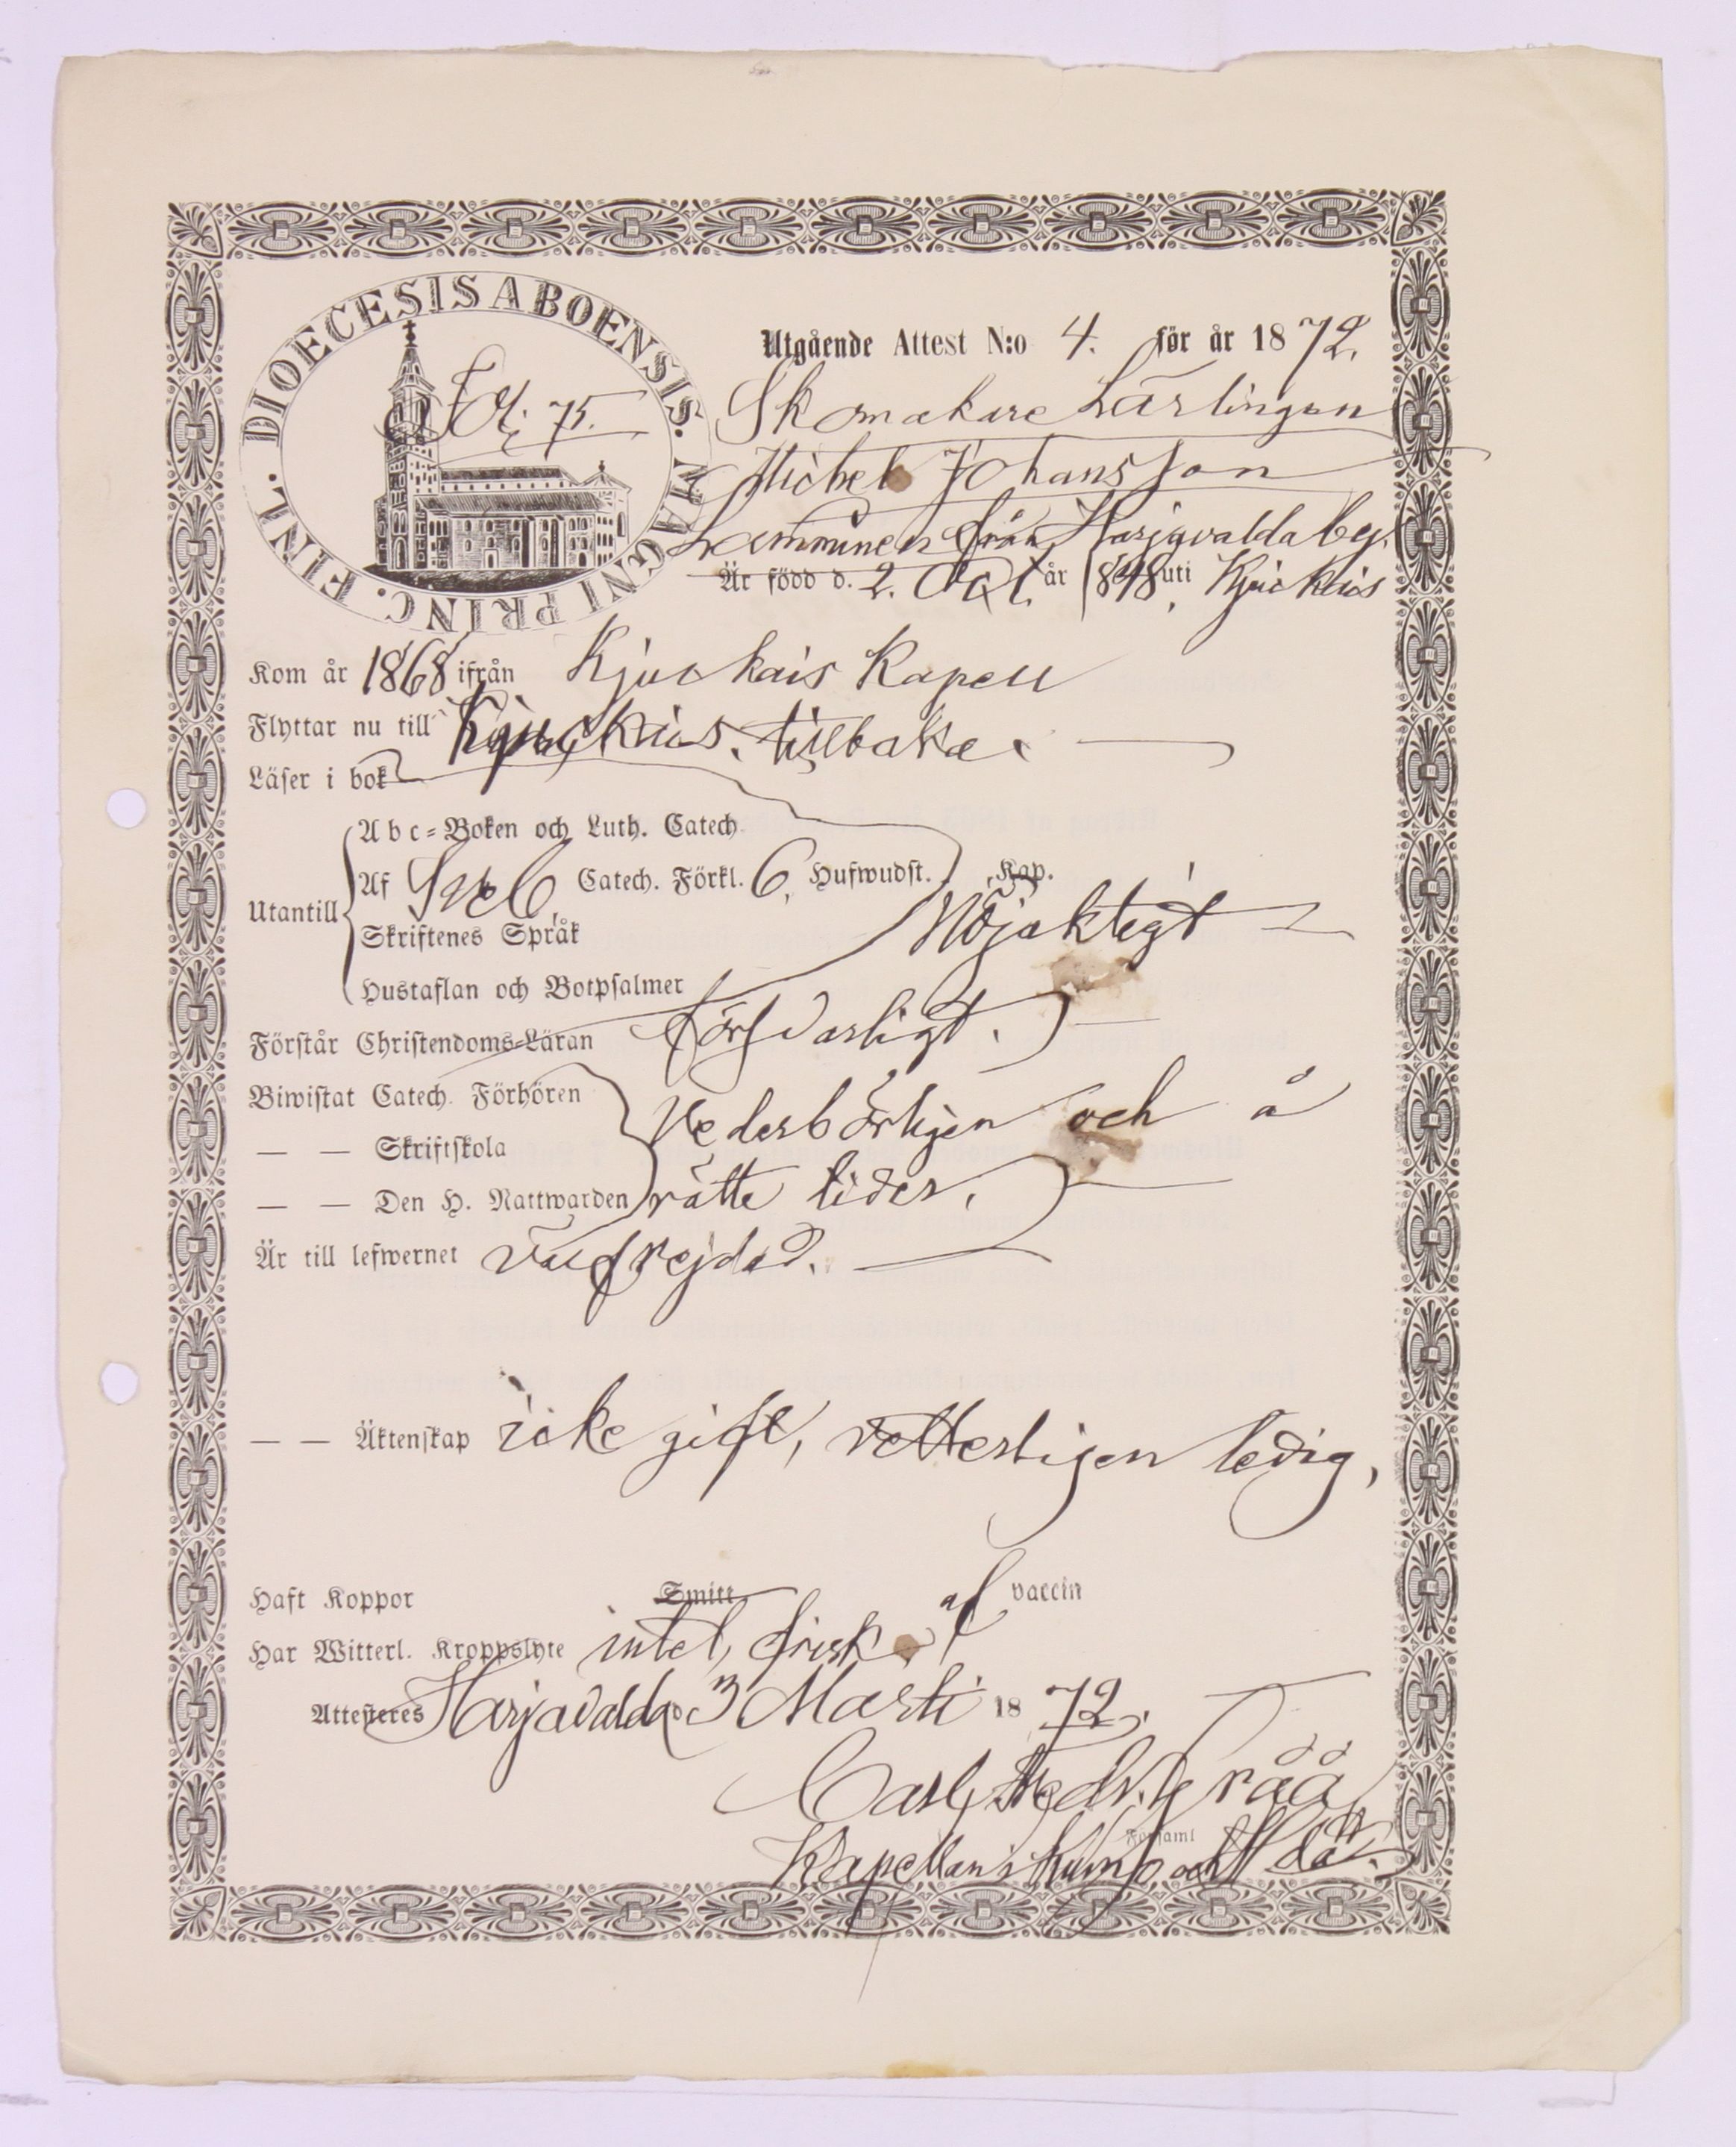 DIOECESIS ABOENSIS. MAGNI PRINC. FINL.
Fol. 75.
Utgående Attest N:o 4. för år 1872.
Skomakare Lärlingen
Michel Johansson
från Harjavalda by.
Är född d. 2. Oct. år 1848, uti Kjuckais
Kom år 1868 ifrån Kjuckais Kapell
Flyttar nu till Kjuckais. tillbaka.
Läser i bok
Abc-Boken och Luth. Catech.
Utantill
Af Sveb. Catech. Förkl. 6. Hufwudst. Kap.
Nöjaktigt
Skriftenes Språk
Hustaflan och Botpsalmer
Förstår Christendoms-Läran försvarligt.
Biwistat Catech. Förhören
vederbörligen och å
— — Skriftskola
— — Den H. Nattwarden rätte tider.
Är till lefwernet välfrejdad.
— — Äktenskap icke gift, vetterligen ledig,
Haft Koppor Smitt af vaccin
Har Witterl. Kroppslyte intet, frisk.
Attesteres Harjavalda d. 3 Marti 1872.
Carl Fredr. Gråå
Församl
Kapellan i Kumo och